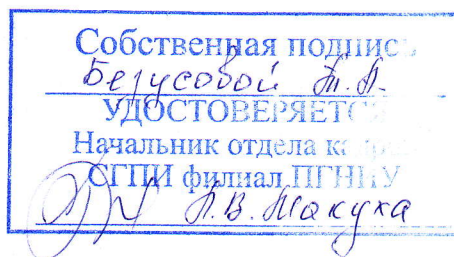 Собственная подпись
Безусовой Т. А.
УДОСТОВЕРЯЕТСЯ
Начальник отдела кадров
СГПИ филиал ПГНИУ
Л.В. Макуха